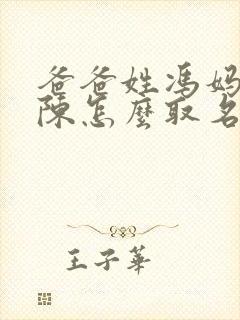 爸爸姓馮媽
陳怎麼取名
王子華